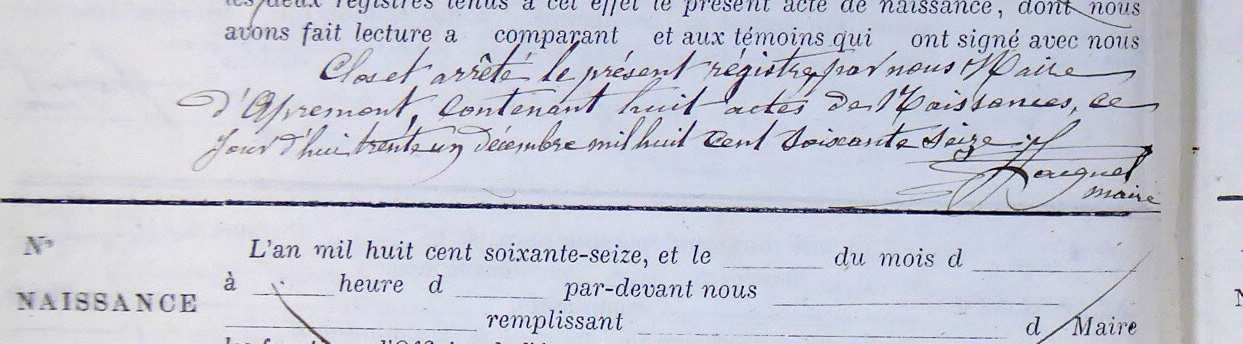 les deux registres tenus à cet effet le présent acte de naissance, dont nous
avons fait lecture a comparant et aux témoins qui ont signé avec nous
Clos et arrêté le présent régistre, par nous Maire
d'Apremont, contenant huit actes de Naissances, ce
jourd'hui trente un décembre mil huit cent soixante seize
maire
N° L'an mil huit cent soixante-seize, et le du mois d
à heure d par-devant nous
NAISSANCE
remplissant d Maire